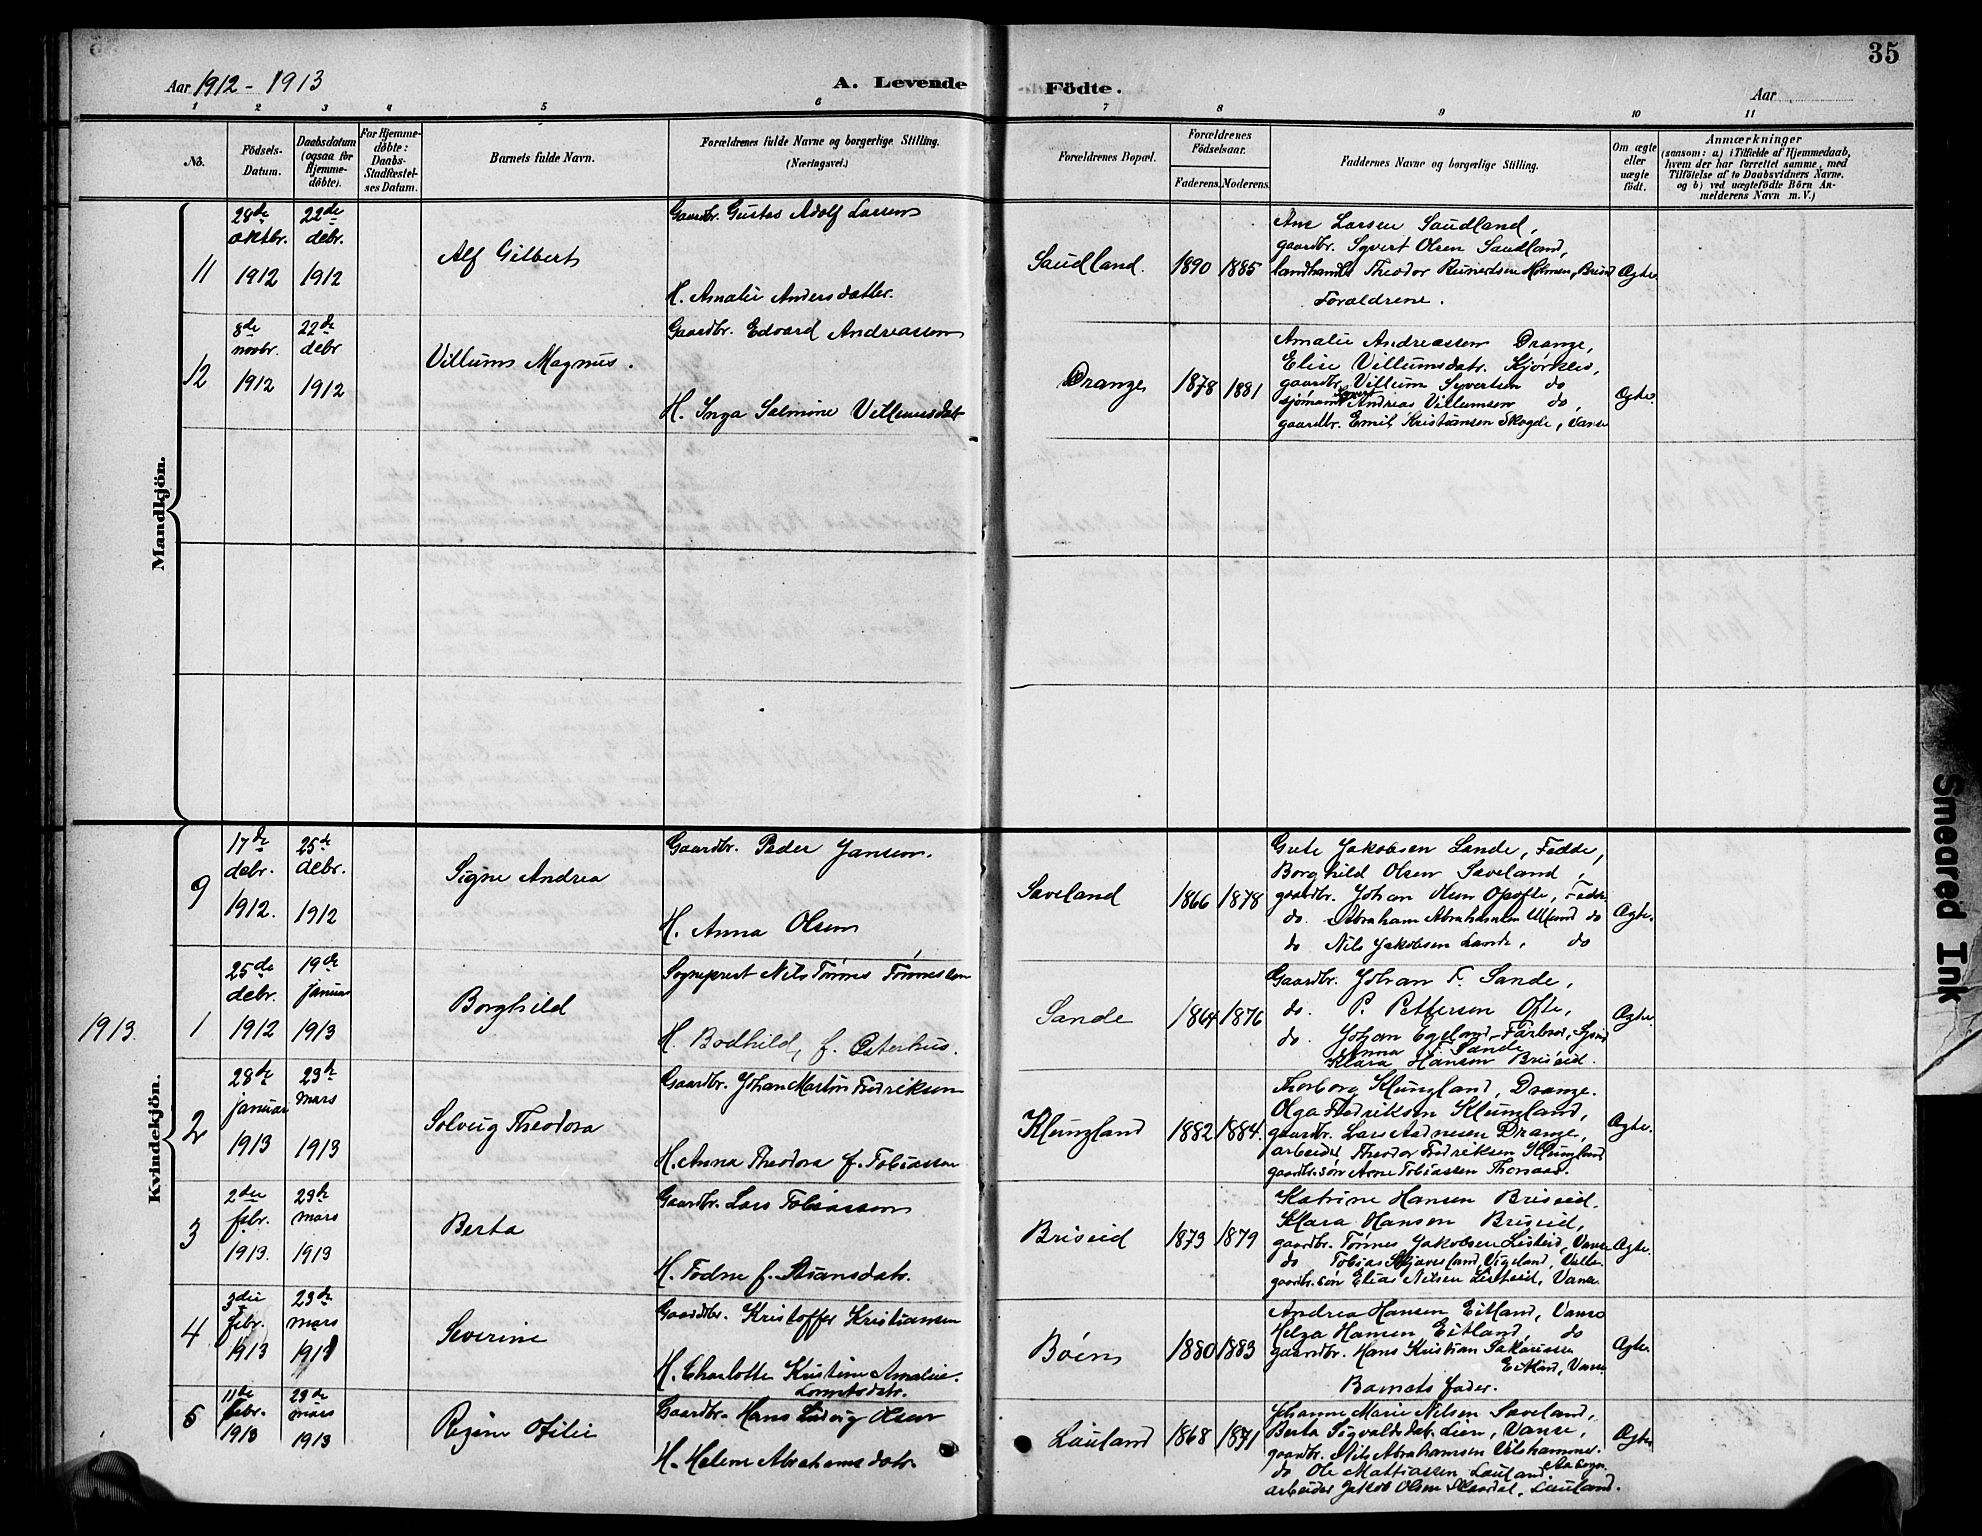 35
Aar 1912 - 1913
A. Levende Födte.
Aar
1 2 3 4 5 6 7 8 9 10 11
No.
Födsels-
Datum.
Daabsdatum
(ogsaa for
Hjemme-
döbte).
For Hjemme-
döbte:
Daabs-
Stadfæstel-
ses Datum.
Barnets fulde Navn.
Forældrenes fulde Navne og borgerlige Stilling.
(Næringsvei.)
Forældrenes Bopæl.
Forældrenes
Födselsaar.
Faderens. Moderens.
Faddernes Navne og borgerlige Stilling.
Om ægte
eller
uægte
födt.
Anmærkninger
(saasom: a) i Tilfælde af Hjemmedaab,
hvem der har forrettet samme, med
Tilföielse af to Daabsvidners Navne.
og b) ved uægtefödte Börn An-
melderens Navn m. V.)
Mandkjön.
11
28de
oktbr.
1912
22de
debr.
1912
Alf Gilbert
Gaardbr. Gustav Adolf Larsen
H. Amalie Andersdatter.
Saudland.
1890 1885
Ane Larsen Saudland,
gaardbr. Syvert Olsen Saudland,
landhandl. Theodor Reinertsen Holmen,
Forældrene.
Ægte
12
8de
novbr.
1912
22de
debr
1912
Villums Magnus.
Gaardbr. Edvard Andreassen
H. Inga Salmine Villumsdatr
Drange
1878 1881
Amalie Andreassen Drange,
Elise Villumsdatr.
gaardbr. Villum Syvertsen do
sjømand Andreas Villumsen do,
gaardbr. Emil Kristiansen Skogde, Vanse
Ægte
Kvindekjön.
9
17de
debr.
1912.
25de
debr.
1912
Signe Andrea
Gaardbr. Peder Jansen.
H. Anna Olsen
Saveland
1866 1878
Gute Jakobsen Sande, Fedde,
Borghild Olsen Saveland,
gaardbr. Johan Olsen Opofte, Fedde
do. Abraham Abrahamsen do
do Nils Jakobsen Lande, do
Ægte.
1913.
1
25de
debr.
1912
19de
januar
1913
Borghild
Sogneprest Nils Tønnes Tønnessen
H. Bodhild, f. Østerhus.
Sande
1864 1876
Gaardbr. Johan F. Sande,
do. P. Pettersen Ofte,
do. Johan Egeland,
Anna F Sande
Klara Hansen Briseid.
Ægte.
2
28de
januar
1913
23de
mars
1913
Solveig Theodora
Gaardbr. Johan Martin Fredriksen
H. Anna Theodora f. Tobiassen
Klungland
1882 1884.
Thorborg Klungland, Drange.
Olga Fredriksen Klungland,
gaardbr. Lars Aadnesen Drange,
arbeider Theodor Fredriksen Klungland
gaardbr.søn Arne Tobiassen
Ægte.
3
2den
febr.
1913.
23de
mars
1913
Berta
Gaardbr. Lars Tobiassen
H. Todne f.
Briseid
1873 1879
Katrine Hansen Briseid.
Klara Hansen Briseid,
gaardbr. Tønnes Jakobsen Listeid, Vanse
do Tobias Skjævesland, Vigeland, Valle.
gaardbr.søn Elias Nilsen Listeid, Vanse
Ægte.
4
3die
febr.
1913
23de
mars
1913
Severine
Gaardbr. Kristoffer Kristiansen
H. Charlotte Kristine Amalie.
Lorentsdatr.
Bøen
1880 1883
Andrea Hansen Eitland, Vanse
Helga Hansen Eitland do
gaardbr. Hans Kristian Sakariassen
Eitland, Vanse
Barnets fader.
Ægte
5
11de
febr.
1913
23de
mars
1913
Regine Otilie
Gaardbr. Hans Ludvig Olsen
H. Helene Abrahamsdatr
Lauland
1868 1871
Johanne Marie Nilsen Saveland,
Berta Sigvaldsdat. Lien, Vanse,
gaardbr. Nils Abrahamsen
Aa sogn.
do Ole Mattiassen Lauland.
arbeider Jakob Olsen Lauland.
Ægte
Smeared Ink